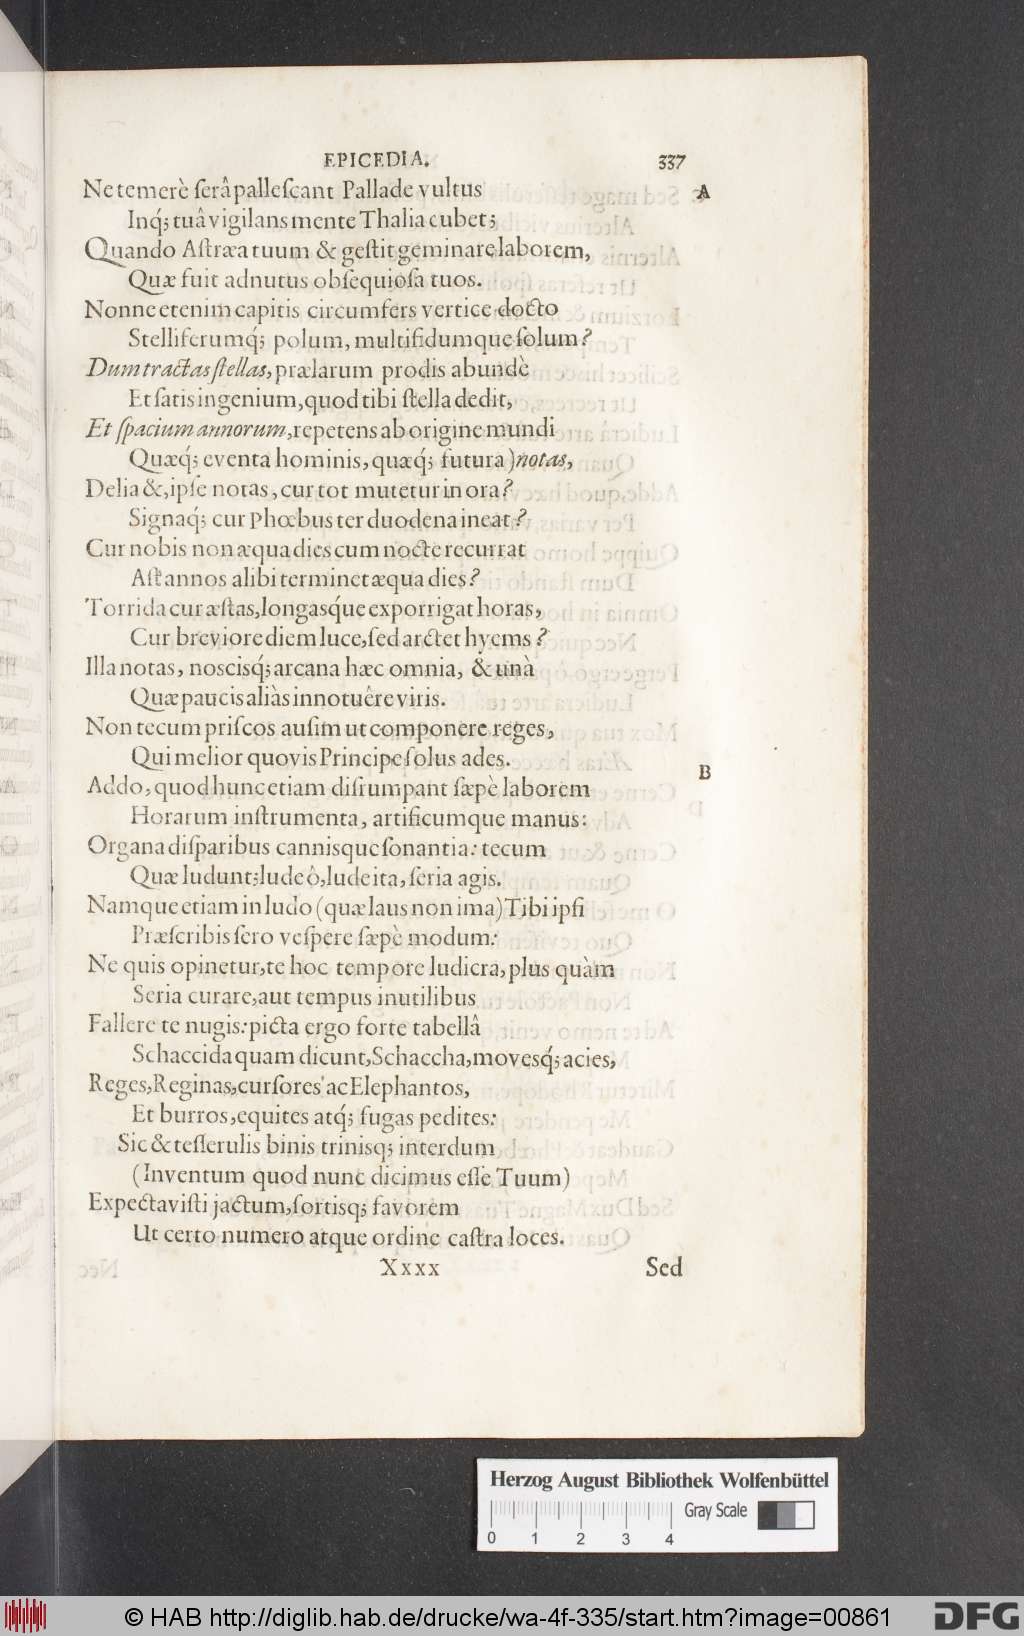 EPICEDIA. 337
Ne temerè serâ pallescant Pallade vultus A
Inq́; tuâ vigilans mente Thalia cubet;
Quando Astræa tuum & gestit geminare laborem,
Quæ fuit adnutus obsequiosa tuos.
Nonne etenim capitis circumfers vertice docto
Stelliferumq́; polum, multifidumque solum?
Dum tractas stellas, prælarum prodis abundè
Et satis ingenium, quod tibi stella dedit,
Et spacium annorum, repetens ab origine mundi
Quæq́; eventa hominis, quæq́; futura) notas,
Delia &, ipse notas, cur tot mutetur in ora?
Signaq́; cur Phœbus ter duodena ineat?
Cur nobis non æqua dies cum nocte recurrat
Ast annos alibi terminet æqua dies?
Torrida cur æstas, longasq́ue exporrigat horas,
Cur breviore diem luce, sed arctet hyems?
Illa notas, noscisq́; arcana hæc omnia, & unà
Quæ paucis aliàs innotuêre viris.
Non tecum priscos ausim ut componere reges,
Qui melior quovis Principe solus ades.
B
Addo, quod hunc etiam disrumpant sæpè laborem
Horarum instrumenta, artificumque manus:
Organa disparibus cannisque sonantia: tecum
Quæ ludunt; lude ô, lude ita, seria agis.
Namque etiam in ludo (quæ laus non ima) Tibi ipsi
Præscribis sero vespere sæpè modum:
Ne quis opinetur, te hoc tempore ludicra, plus quàm
Seria curare, aut tempus inutilibus
Fallere te nugis: picta ergo forte tabellâ
Schaccida quam dicunt, Schaccha, movesq́; acies,
Reges, Reginas, cursores ac Elephantos,
Et burros, equites atq́; fugas pedites:
Sic & tesserulis binis trinisq; interdum
(Inventum quod nunc dicimus esse Tuum)
Expectavisti jactum, sortisq; favorem
Ut certo numero atque ordine castra loces.
Xxxx Sed
Herzog August Bibliothek Wolfenbüttel
Gray Scale
0 1 2 3 4
© HAB http://diglib.hab.de/drucke/wa-4f-335/start.htm?image=00861
DFG